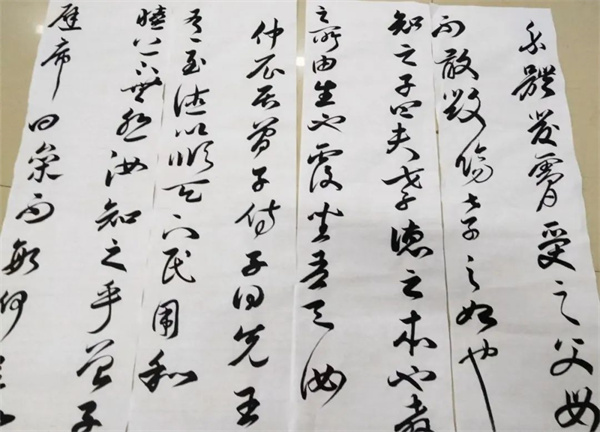 身體髮膚受之父母
不敢毀傷孝之始也
知之子曰夫孝德之本也教
之所由生也復坐吾語汝
仲尼居曾子侍子曰先王
有至德以順天下民用和
睦上下無怨汝知之乎曾子
避席曰參不敏何